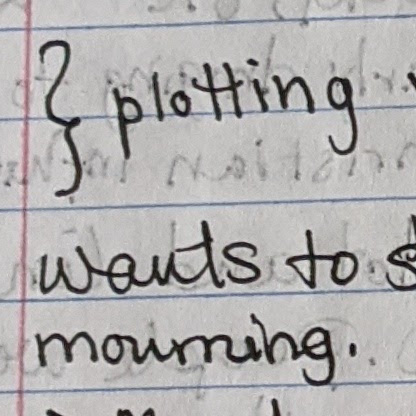 { plotting
wants to
mourning.